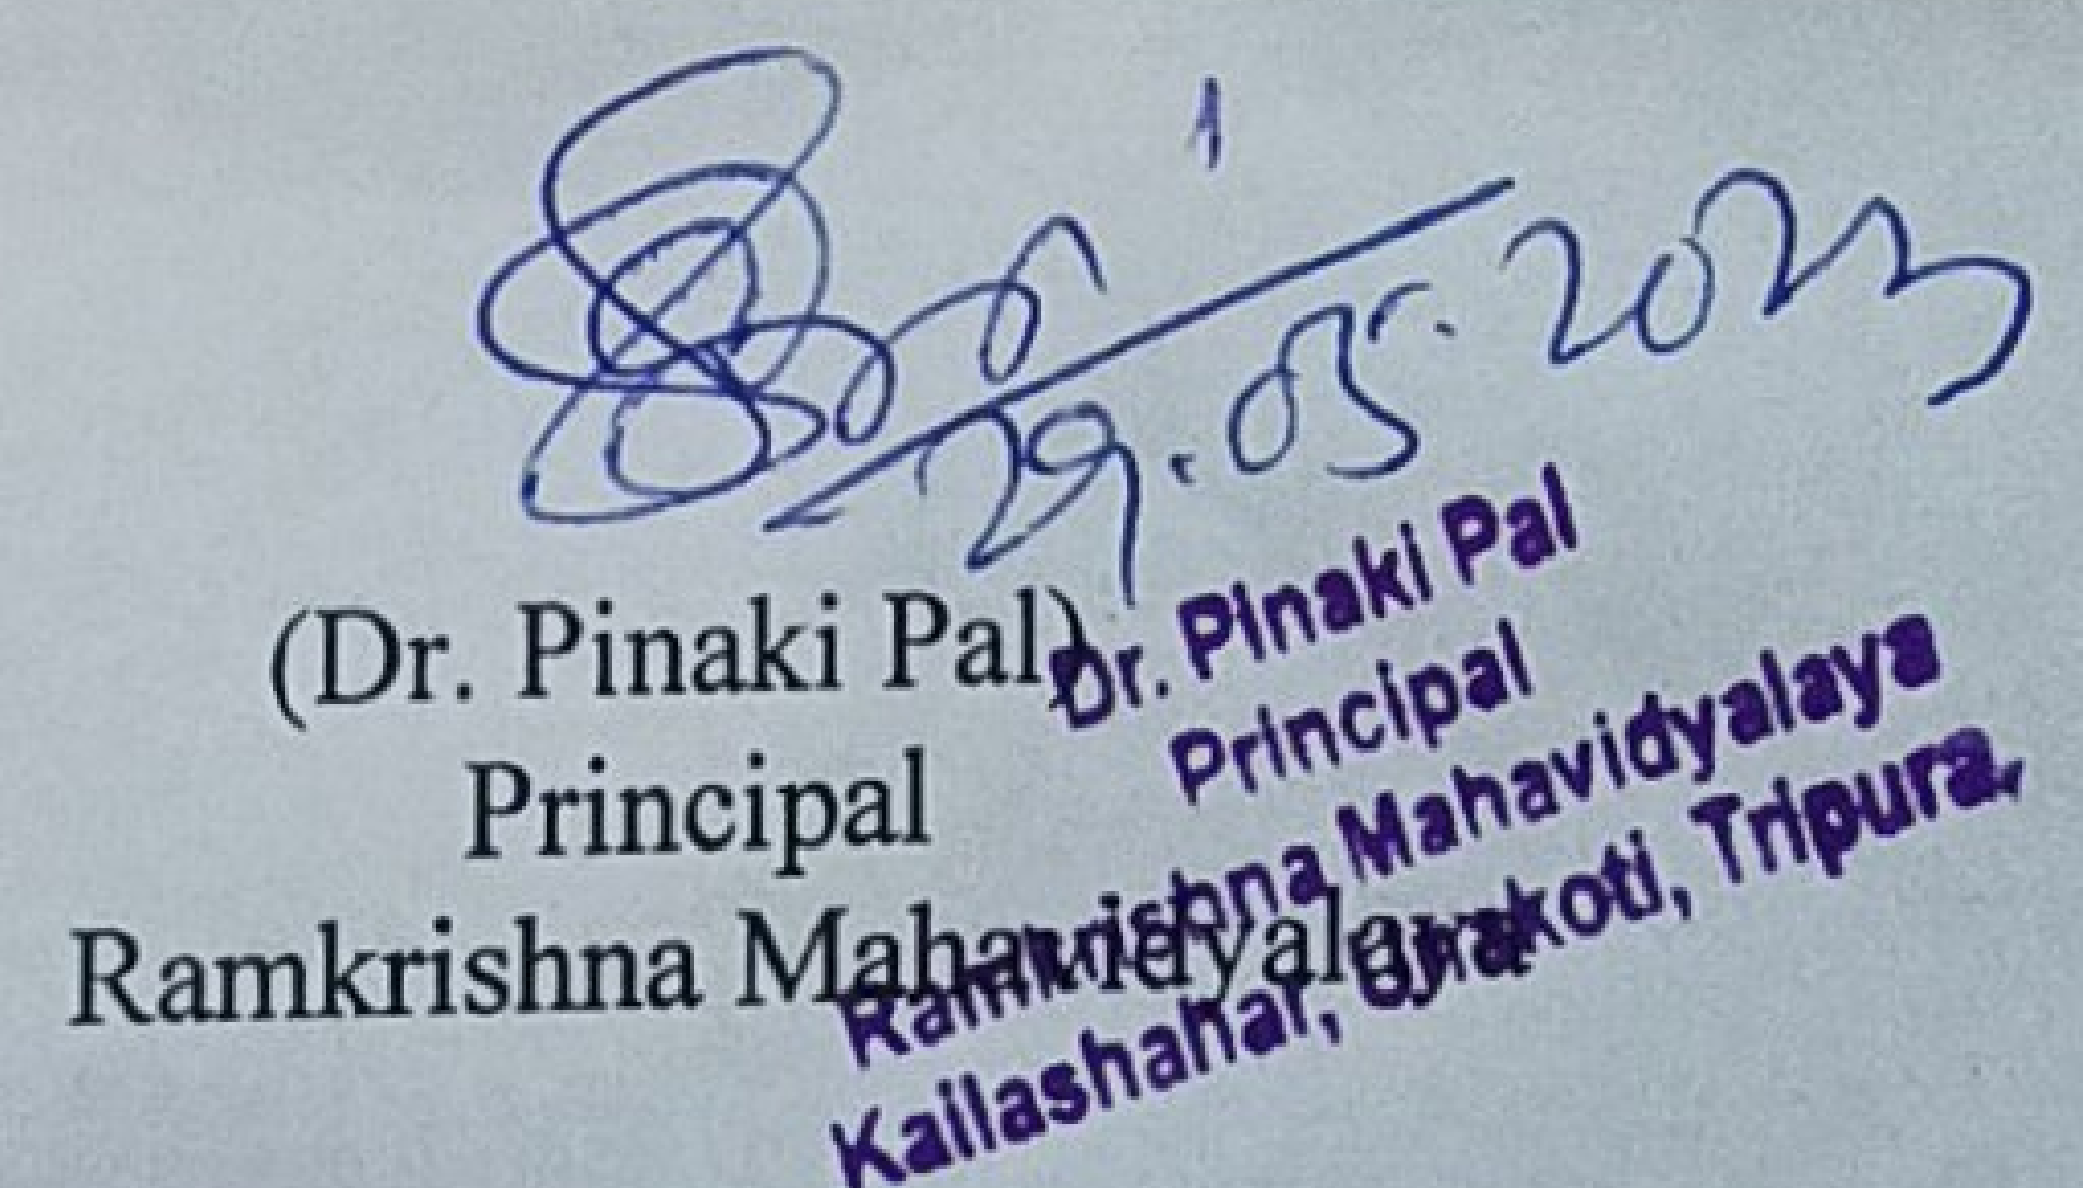 29.05.2023
(Dr. Pinaki Pal)
Principal
Ramkrishna Mahavidyalaya
Dr. Pinaki Pal
Principal
Ramkrishna Mahavidyalaya
Kailashahar, Unakoti, Tripura.